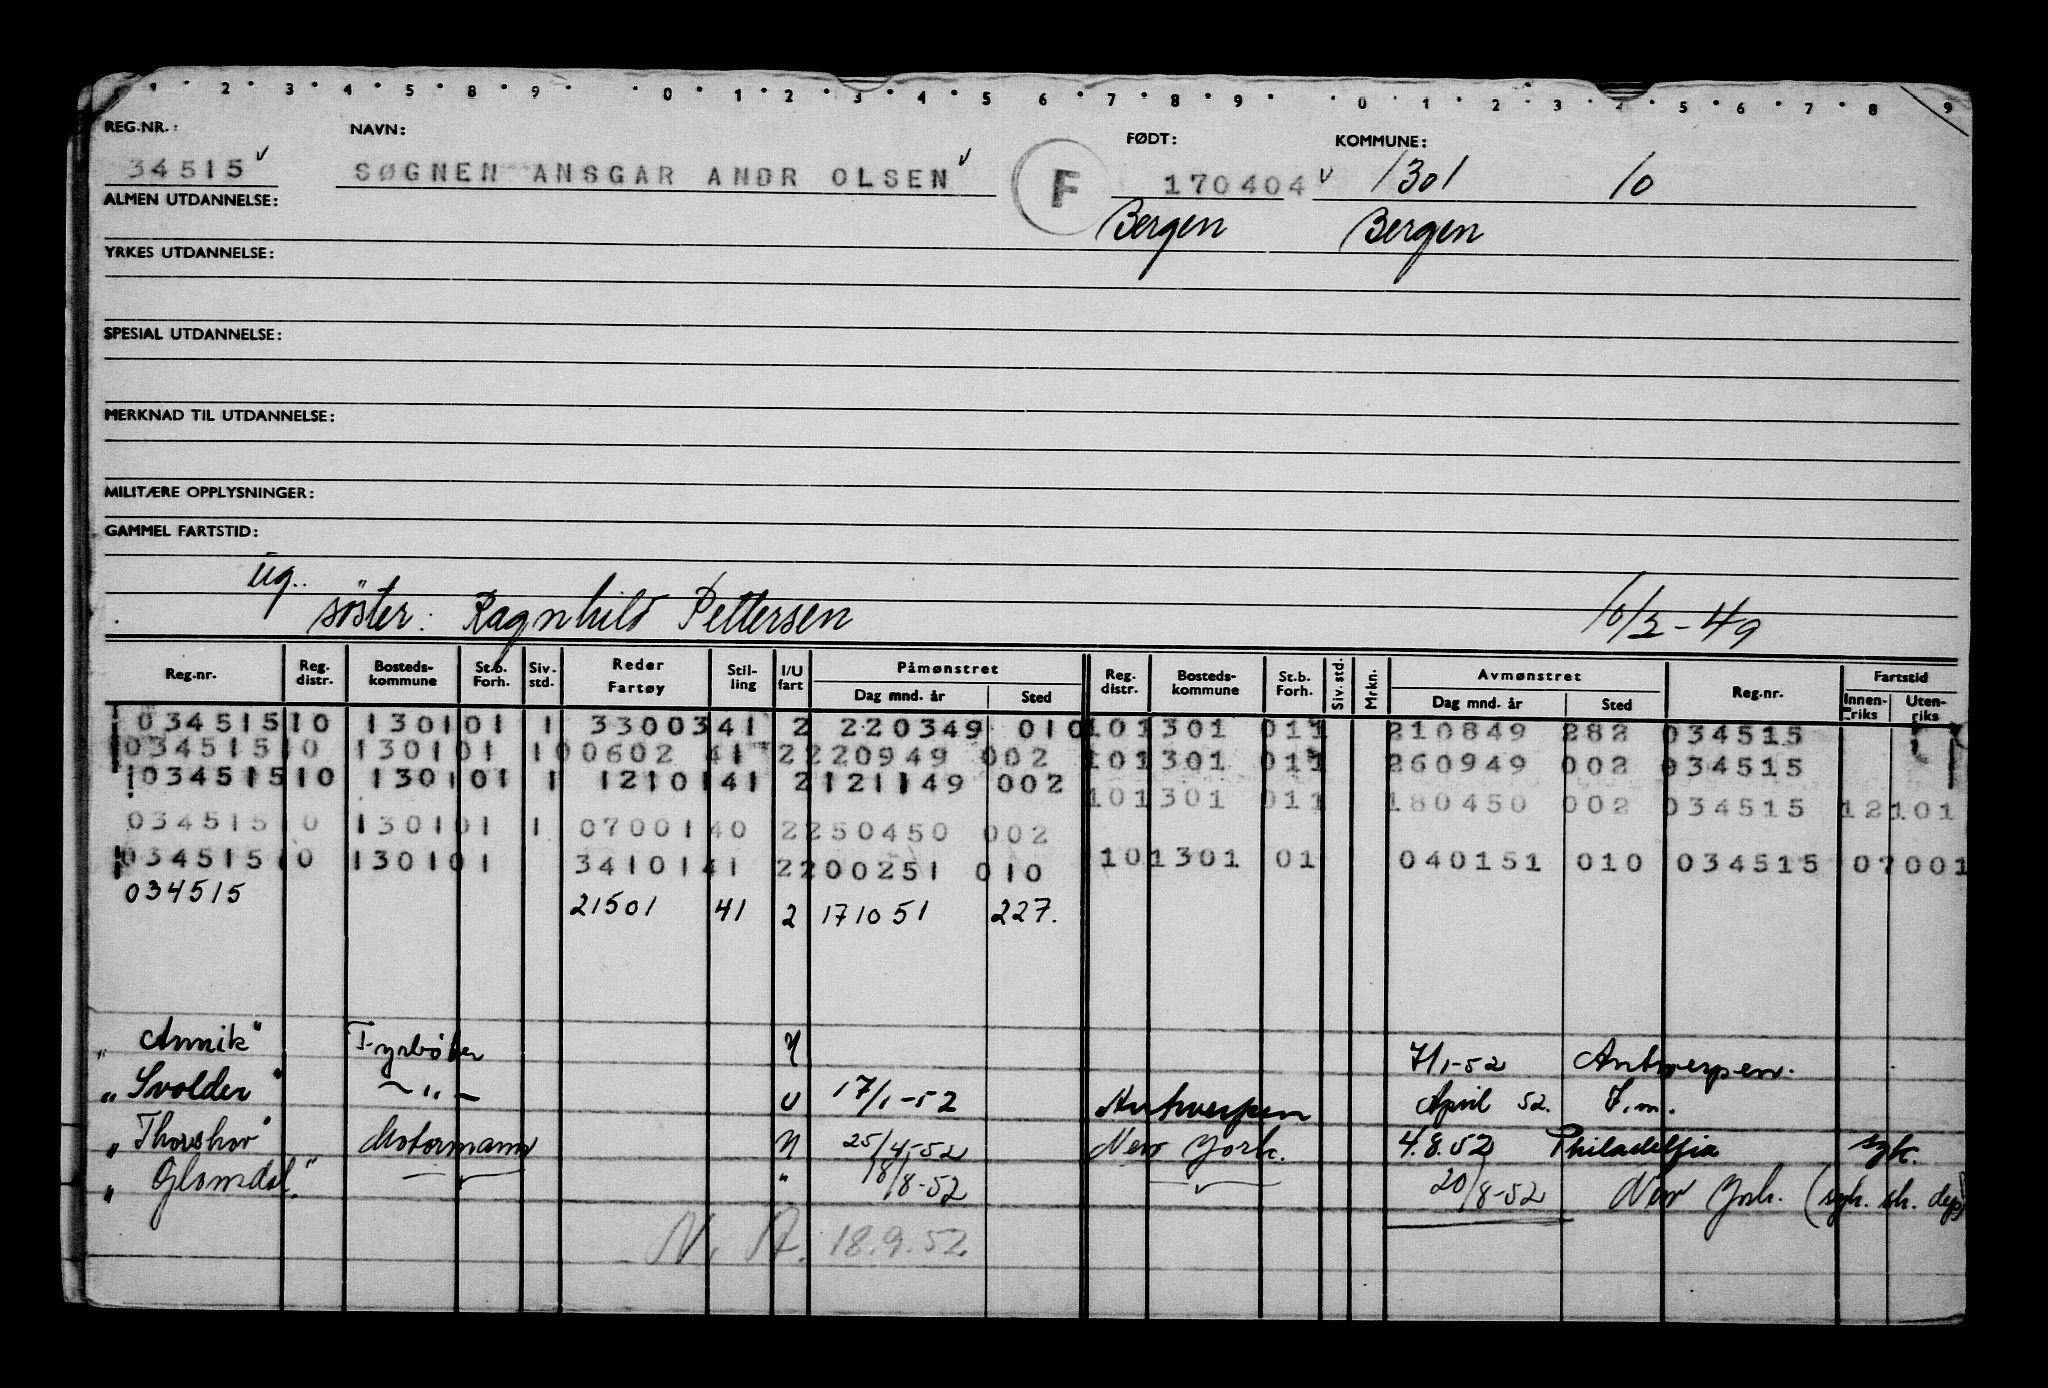 1 2 3 4 5 8 9 0 1 2 3 4 5 6 7 8 9 0 1 2 3 4 5 6 7 8 9
REG.NR.: NAVN: FØDT: KOMMUNE:
34515 SØGNEN ANSGAR ANDR OLSEN F 170404 1301 10
ALMEN UTDANNELSE: Bergen Bergen
YRKES UTDANNELSE:
SPESIAL UTDANNELSE:
MERKNAD TIL UTDANNELSE:
MILITÆRE OPPLYSNINGER:
GAMMEL FARTSTID:
ug..
söster: Ragnhild Pettersen 10/3-49
Reg.nr. Reg. distr. Bosteds-kommune St.b. Forh. Siv. std. Reder Fartøy Stil-ling I/U fart Påmønstret Dag mnd. år Sted Reg. distr. Bosteds-kommune St.b. Forh. Siv. std. Mrkn. Avmønstret Dag mnd. år Sted Reg.nr. Fartstid Innen-riks Uten-riks
034515 10 1301 01 1 33003 41 2 220349 010 10 1301 011 210849 282 034515
034515 10 1301 01 1 00602 41 2 220949 002 10 1301 011 260949 002 034515
034515 10 1301 01 1 12101 41 2 121149 002 10 1301 011 180450 002 034515 12101
034515 10 1301 01 1 07001 40 2 250450 002
034515 10 1301 01 34101 41 2 200251 010 10 1301 01 040151 010 034515 07001
034515 21501 41 2 171051 227.
„Annik" Fyrbøter 7/1-52 Antwerpen.
„Svolder" — " — U 17/1-52 Antwerpen April 52. F.m.
„Thorshov" Motormann 25/4-52 New York. 4.8.52 Philadelfia syk.
„Glomdal." " 18/8-52 20/8-52 New York. (syk. sk. dep)
N. A. 18.9.52